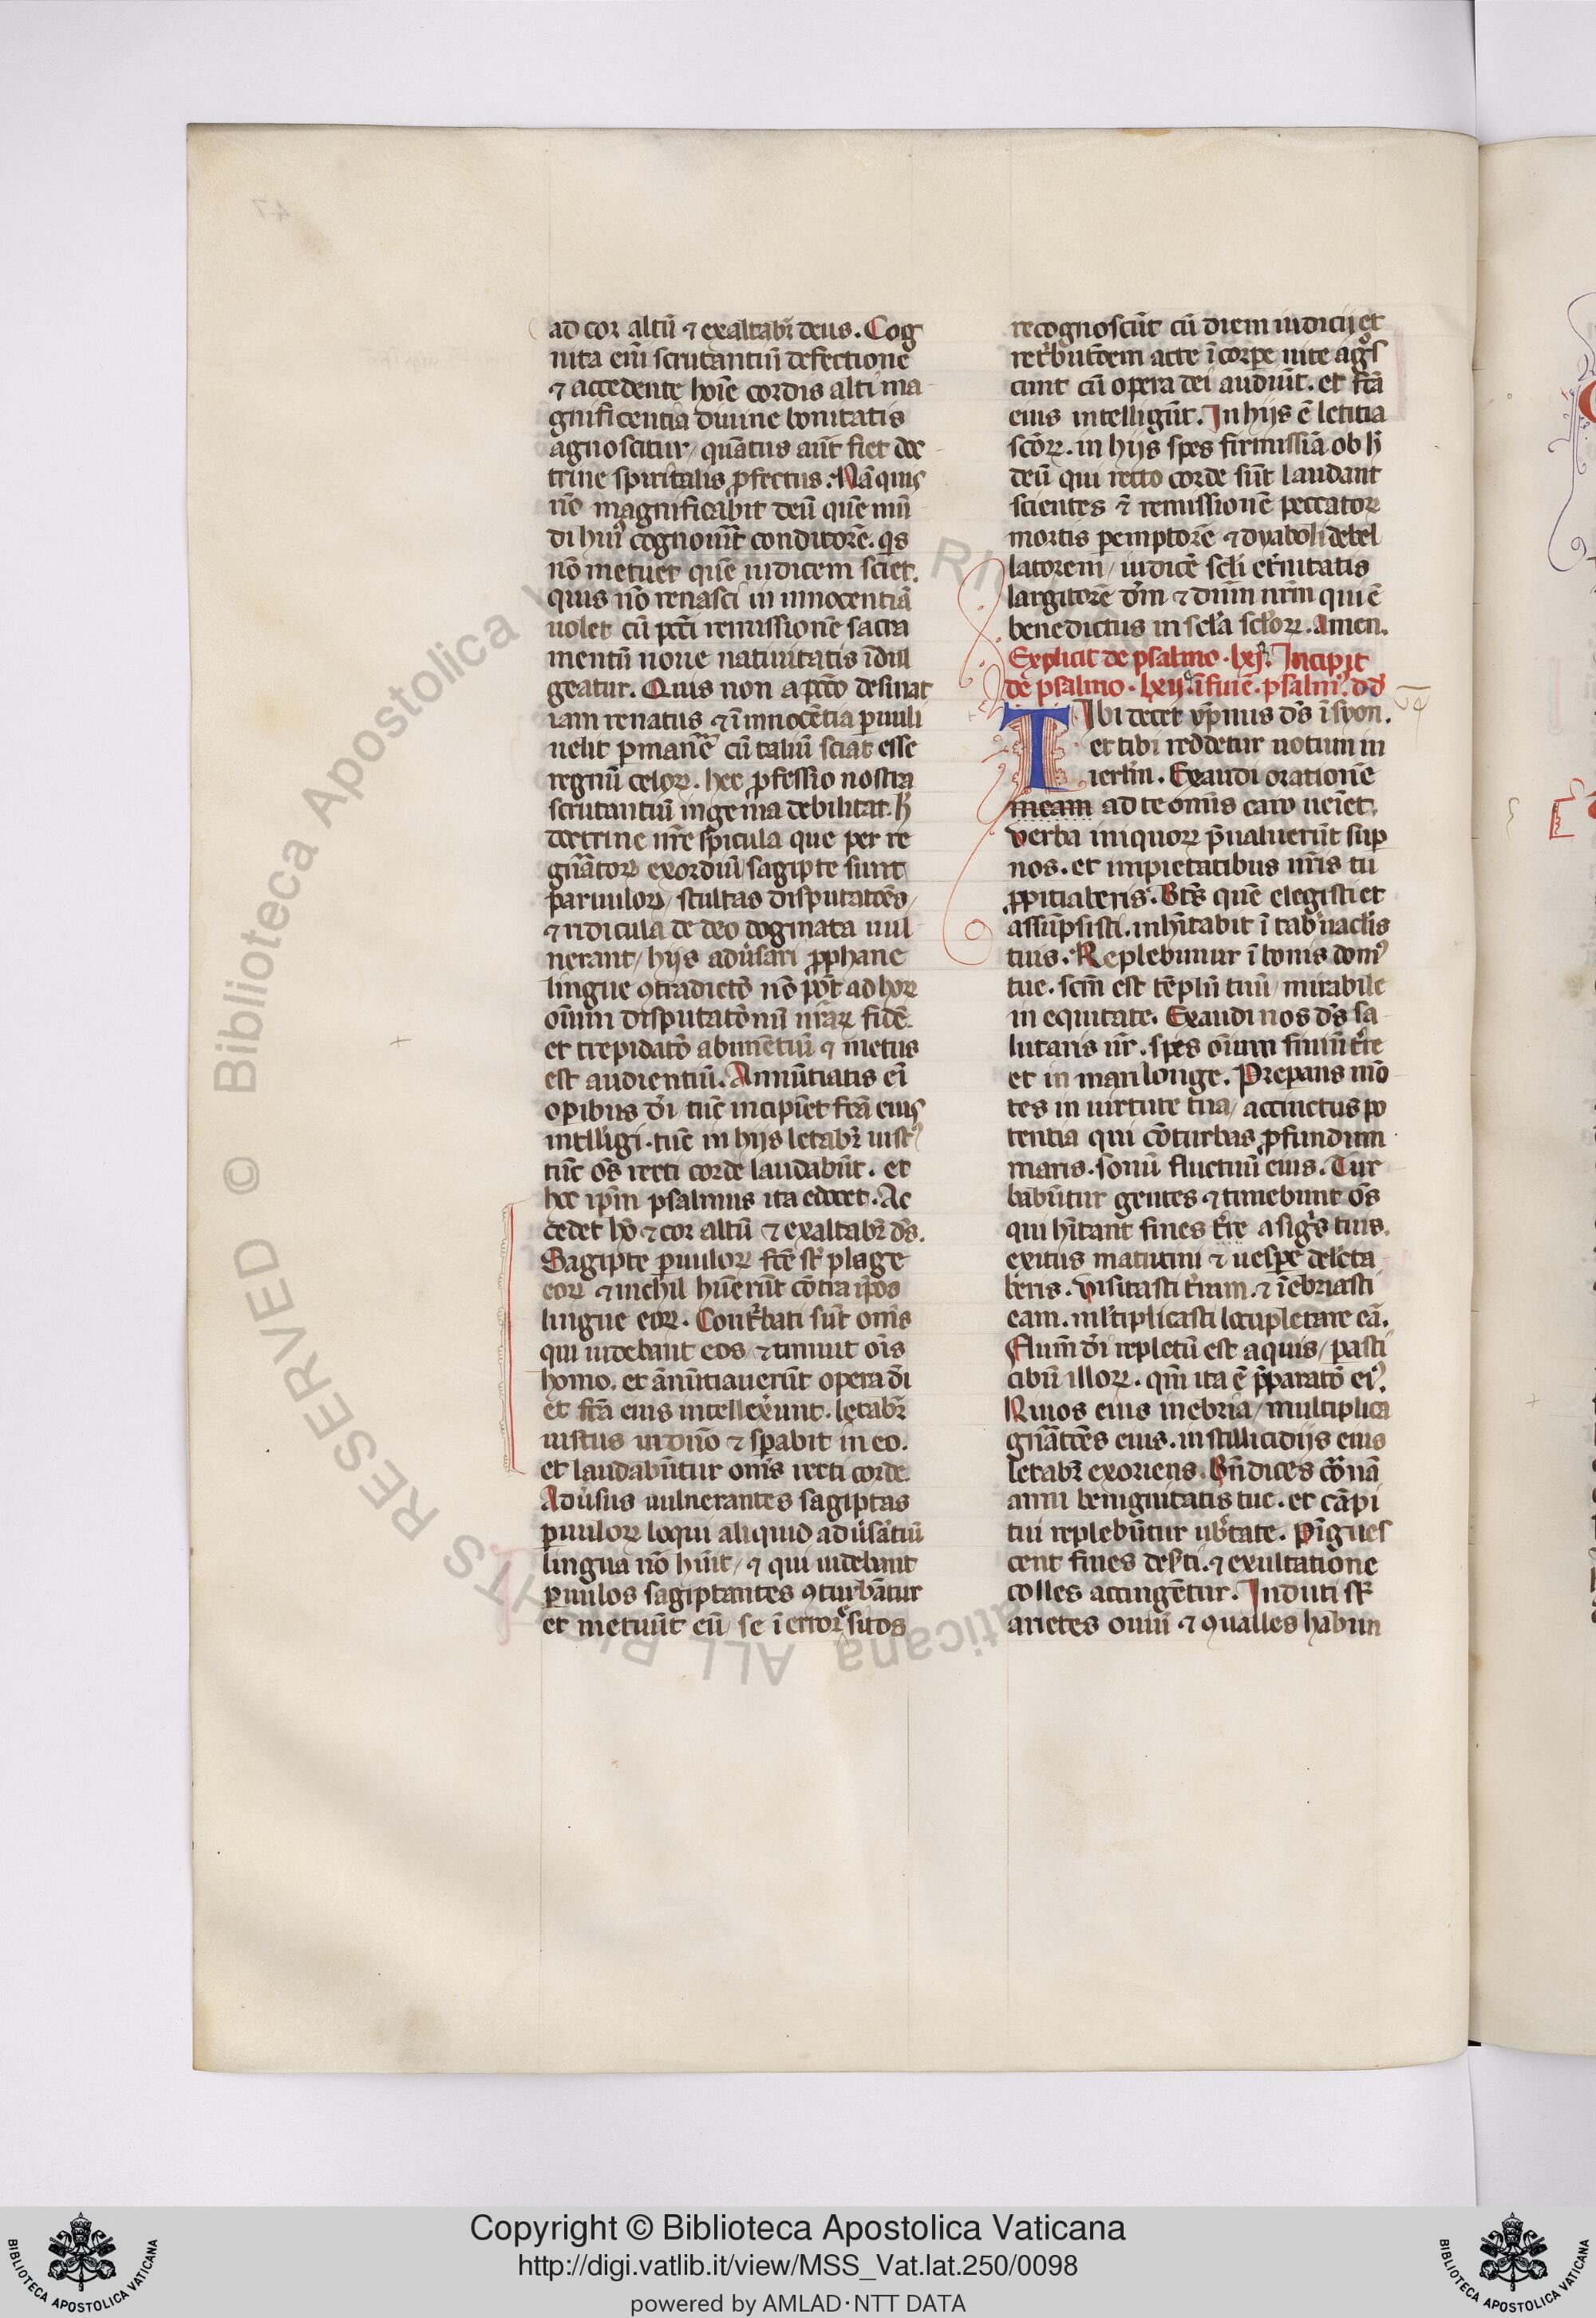 ad cor altū ⁊ exaltabr̄ deus. Cog
nita eni̅ scrutantiū defectione
⁊ accedente hoīe cordis alti ma
gnificentia diuine bonitatis
agnoscitur / quātus aut̄ fiet doc
trine spiritalis ꝓfectus. Nā quis
nō magnificabit deū quē mū
di huiꝰ cognouit̄ conditorē. qis
nō metuet quē iudicem sciet.
quis nō renasci in innocentiā
uolet cū pcc̄i remissionē sacra
mentū noue natiuitatis īdul
geatur. Quis non a pcc̄o desinat
iam renatus ⁊ ī innocētia ꝑuuli
uelit ꝑmanē̄ cū taliū sciat esse
regnū celoꝝ. hec ꝓfessio nostra
scrutantiū ingenia debilitat. h̄
doctrine nr̄e spicula que per re
gn̄atoꝝ exordiū sagipte sunt
paruuloꝝ / stultas disputatōes /
⁊ ridicula de deo dogmata uul
nerant / hijs adūsari ꝓphane
lingue ꝯtradictō nō pōt ad hoꝝ
oīum disputatōnū nr̄aꝝ fidē.
et trepidatō abunētiū ⁊ metus
est audientiū. Annūtiatis eī
oꝑibus dī / tūc incipiet fc̄a eius
intelligi. tūc in hijs letabr̄ iustꝰ
tūc oēs recti corde laudabūt. et
hec ip̄m psalmus ita edocet. Ac
cedet hō ⁊ cor altū ⁊ exaltabr̄ ds̄.
Sagipte ꝑuuloꝝ fc̄e st̄ plage
eoꝝ ⁊ nichil hūerūt cōtra ip̄os
lingue eoꝝ. Cont̄bati sūt omīs
qui uidebant eos / ⁊ timuit oīs
homo. et ānūtiauerūt opera dī
et fc̄a eius intellexūnt. letabr̄
iustus in dn̄o ⁊ sꝑabit in eo.
et laudabūtur omīs recti corde.
Adūsus uulnerantes sagiptas
ꝑuuloꝝ loqui aliquid adūsātiū
lingua nō hūit / ⁊ qui uidebant
ꝑuulos sagiptantes ꝯturbātur
et metuūt eū / se ī errorē sitos
recognoscūt cū diem iudicij et
ret̄butōem acte ī corꝑe uite agͦs
cunt cū opera dei audiūt. et fc̄ā
eius intelligūt. In hijs ē letitia
sc̄oꝝ. in hijs spes firmissīa ob h̄
deū qui recto corde sūt laudant
scientes ī remissionē peccatoꝝ
mortis ꝑemptorē ⁊ dyaboli debel
latorem / iudicē sc̄li et̄nitatis
largitorē dīm ⁊ dnīm nr̄m qui ē
benedictus in sc̄la sc̄loꝝ. Amen.
Explicit de psalmo . lxj. Incipit
de psalmo . lxij. ī finē . psalmꝰ. dd̄
Tibi decet ypnus ds̄ ī syon.
et tibi reddetur uotum in
ierl̄m. Exaudi orationē
meam ad te omīs caro ueniet.
verba iniquoꝝ p̄ualuerūt suꝑ
nos. et impietatibus nr̄is tu
ꝓpitiaberis. Bt̄s quē elegisti et
assūpsisti. inhītabit ī tab̄nacl̄is
tuis. Replebimur ī bonis domꝰ
tue. sc̄m est tēplū tuū / mirabile
in equitate. Exaudi nos ds̄ sa
lutaris nr̄. spes oīum finiū t̄re
et in mari longe. Preparas mō
tes in uirtute tua / accinctus po
tentia qui cōturbas ꝓfundum
maris. sonū fluctuū eius. Tur
babūtur gentes ⁊ timebunt oēs
qui hītant fines t̄re a sigīs tuis.
exitus matutini ⁊ uesꝑe delecta
beris. Visitasti t̄ram. ⁊ īebriasti
eam. ml̄tiplicasti locupletare eā.
Flum̄ dī repletū est aquis / parasti
cibū illoꝝ. qm̄ ita ē p̄paratō eiꝰ.
Riuos eius inebria / multiplica
gn̄atōes eius. in stillicidijs eius
letabr̄ exoriens. Bn̄dices corōnā
anni benignitatis tue. et cāpi
tui replebūtur ub̄tate. Pīgues
cent fines des̄ti. ⁊ exultatione
colles accingētur. Induti st̄
arietes ouiū ⁊ ꝯualles habun
Copyright © Biblioteca Apostolica Vaticana
http://digi.vatlib.it/view/MSS_Vat.lat.250/0098
powered by AMLAD·NTT DATA